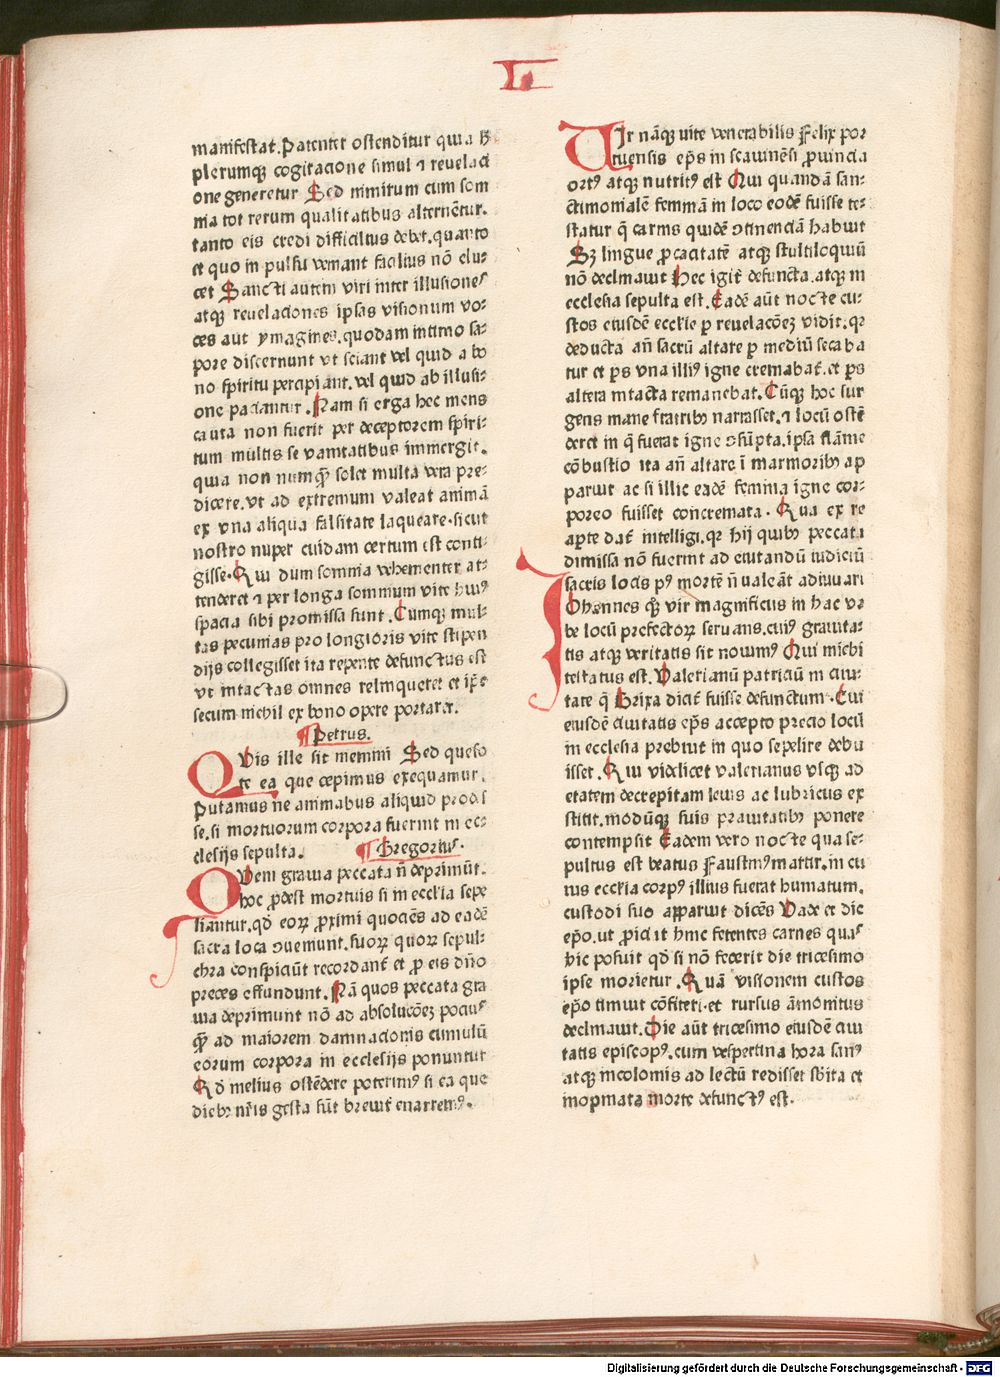 L
manifestat. Patenter ostenditur quia h
plerumqꝫ cogitacione simul ⁊ reuelaci
one generetur Sed nimirum cum som
nia tot rerum qualitatibus alternēttur.
tanto eis credi difficilius debet. quanto
et quo in pulsu veniant facilius nō elu-
cet Sancti autem viri inter illusiones
atqꝫ reuelaciones ipsas visionum vo-
ces aut ymagines. quodam intimo sa-
pore discernunt vt sciant vel quid a bo
no spiritu percipiant. vel quid ab illusi-
one paciantur. Nam si erga hec mens
cauta non fuerit per deceptorem spiri-
tum multis se vanitatibus immergit.
quia non nūmqꝫ solet multa vera pre-
dicere. vt ad extremum valeat animā
ex vna aliqua falsitate laqueare. sicut
nostro nuper cuidam certum est conti-
gisse. Qui dum somnia vehementer at-
tenderet ⁊ per longa somnium vite huiꝰ
spacia sibi promissa sunt. Cumqꝫ mul-
tas pecunias pro longioris vite stipen
dijs collegisset ita repente defunctus est
vt intactas omnes relinqueret et ip̄e
secum nichil ex bono opere portaret.
¶ Petrus.
QVis ille sit memini Sed queso
te ea que cepimus exequamur.
Putamus ne animabus aliquid prodes
se. si mortuorum corpora fuerint in ec-
clesijs sepulta. ¶ Gregoriꝰ.
QVem grauia peccata n̄ deprimūt.
hoc ꝓdest mortuis si in ecclīa sepe
liantur. qđ eoꝝ ꝓximi quociēs ad eadē
sacra loca ꝯueniunt. suoꝝ quoꝝ sepul-
chra conspiciūt recordant̄ et ꝓ eis dn̄o
preces effundunt. Nā quos peccata gra
uia deprimunt nō ad absolucōeꝫ pociꝰ
qꝫ̄ ad maiorem damnacionis cumulū
eorum corpora in ecclesijs ponuntur
Qđ melius ostēdere poterimꝰ si ea que
diebꝫ nr̄is gesta sūt breuit̄ enarremꝰ.
VIr nāqꝫ vite venerabilis Felix por
tuensis ep̄s in scauinēsi ꝓuincia
ortꝰ atqꝫ nutritꝰ est Qui quandā san-
ctimonialē femmā in loco eodē fuisse te-
statur q̄ carnis quidē ꝯtinenciā habuit
Sꝫ lingue ꝓcacitatē atqꝫ stultiloquiū
nō declinauit Hec igit̄ defuncta. atqꝫ in
ecclesia sepulta est. Eadē aūt nocte cu-
stos eiusdē eccl̄ie ꝑ reuelacōeꝫ vidit. qꝛ
deducta an̄ sacrū altare ꝑ mediū secaba
tur et ꝑs vna illiꝰ igne cremabat̄. et ꝑs
altera intacta remanebat. Cūqꝫ hoc sur
gens mane fratribꝫ narrasset. ⁊ locū ostē
deret in q̄ fuerat igne ꝯsūpta. ipsa flāme
cōbustio ita an̄ altare ī marmoribꝫ ap
paruit ac si illic eadē femina igne cor-
poreo fuisset concremata. Qua ex re
aperte dat̄ intelligi. qꝛ hij quibꝫ peccata
dimissa nō fuerint ad euitandū iudiciū
sacris locis pꝰ mortē n̄ valeāt adiuuari
IOhannes qꝫ vir magnificus in hac vr
be locū prefectoꝝ seruans. cuiꝰ grauita-
tis atqꝫ veritatis sit nouimꝰ Qui michi
testatus est. Valerianū patriciū in ciui-
tate q̄ Brixa dicit̄ fuisse defunctum. Cui
eiusdē ciuitatis ep̄s accepto precio locū
in ecclesia prebuit in quo sepelire debu
isset. Qui videlicet valerianus vsqꝫ ad
etatem decrepitam leuis ac lubricus ex
stitit. modūqꝫ suis prauitatibꝫ ponere
contempsit Eadem vero nocte qua se-
pultus est beatus Faustinꝰ martir. in cu
ius eccl̄ia corpꝰ illius fuerat humatum.
custodi suo apparuit dicēs Vade et dic
ep̄o. vt ꝓiciat hinc fetentes carnes quas
hic posuit qđ si nō fecerit die tricesimo
ipse morietur. Quā visionem custos
ep̄o timuit cōfiteri. et rursus āmonitus
declinauit. Die aūt tricesimo eiusdē ciui
tatis episcopꝰ. cum vespertina hora sanꝰ
atqꝫ incolomis ad lectū redisset sb̄ita et
inopinata morte defunctꝰ est.
Digitalisierung gefördert durch die Deutsche Forschungsgemeinschaft - DFG